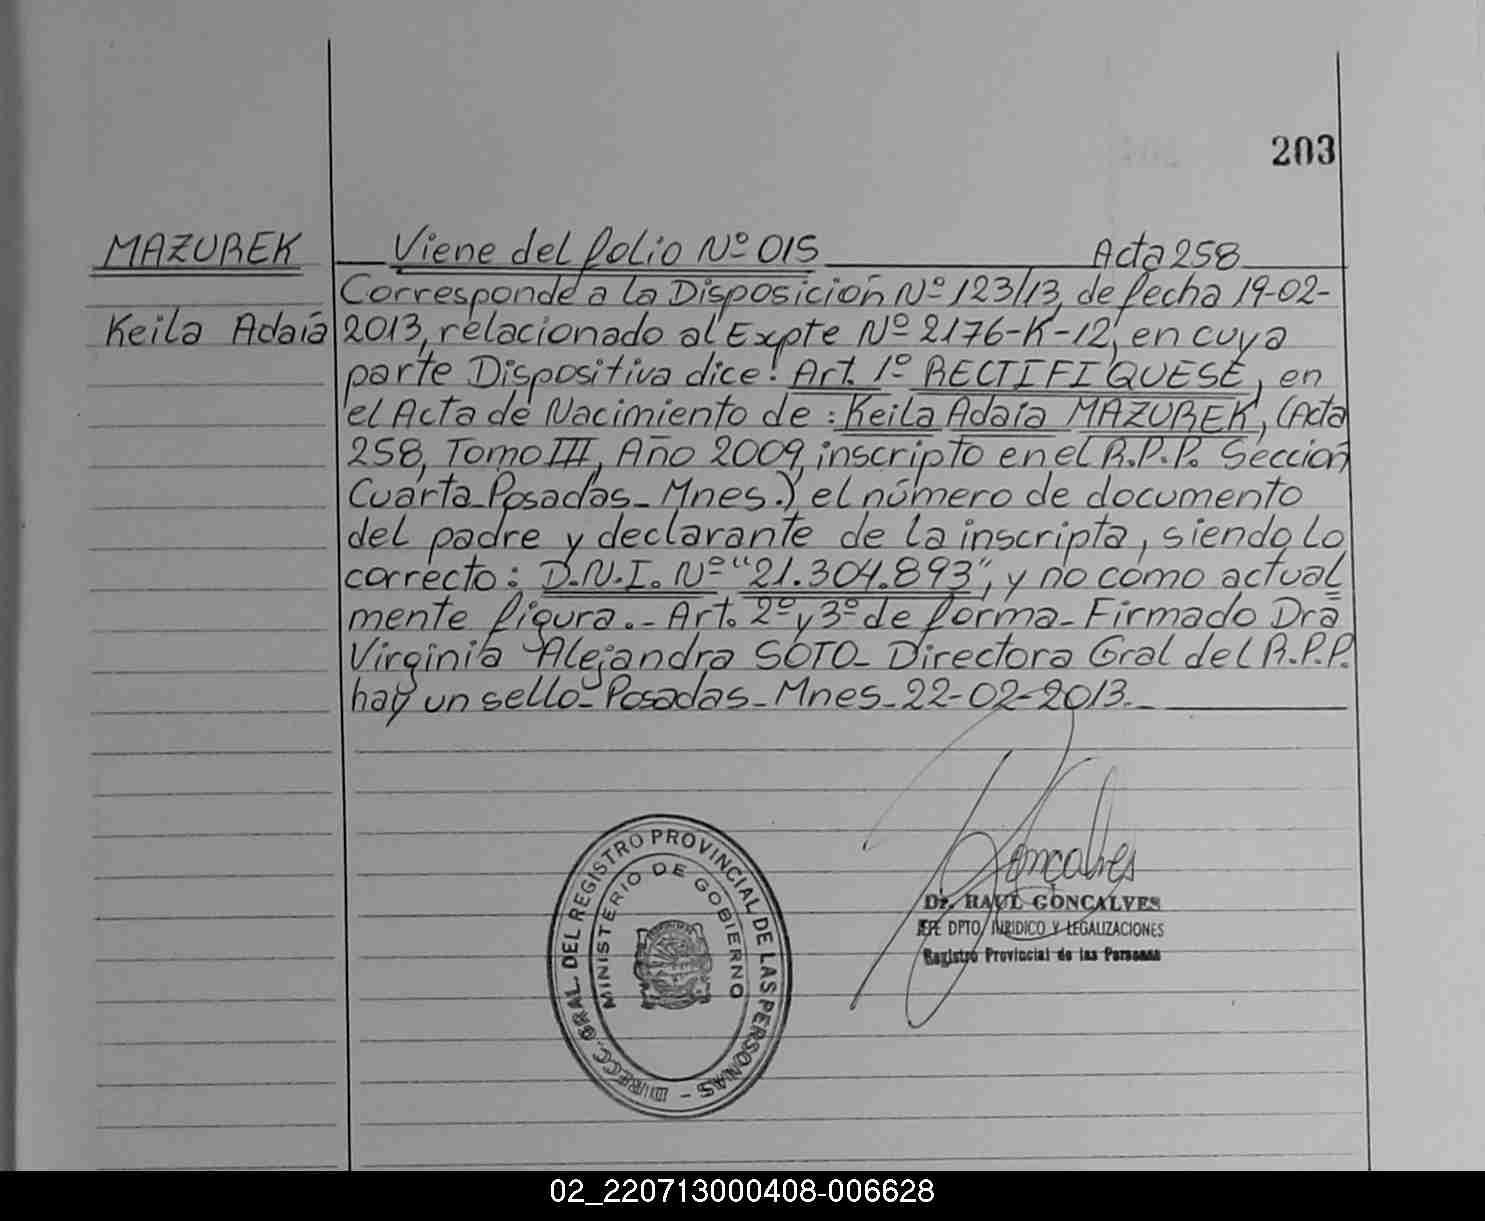 203
MAZUREK
Viene del folio Nº 015 Acta 258
Corresponde a la Disposición Nº 123/13, de fecha 19-02-
Keila Adaía
2013, relacionado al Expte Nº 2176-K-12, en cuya
parte Dispositiva dice: Art. 1º RECTIFIQUESE, en
el Acta de Nacimiento de: Keila Adaía MAZUREK, (Acta
258, Tomo III, Año 2009, inscripto en el R.P.P. Sección
Cuarta Posadas - Mnes.) el número de documento
del padre y declarante de la inscripta, siendo lo
correcto: D.N.I. Nº "21.304.893", y no como actual
mente figura.- Art. 2º y 3º de forma - Firmado Dra
Virginia Alejandra SOTO - Directora Gral del R.P.P.
hay un sello - Posadas - Mnes - 22-02-2013.-
DIRECC. GRAL. DEL REGISTRO PROVINCIAL DE LAS PERSONAS -
MINISTERIO DE GOBIERNO
Goncalves
Dr. RAUL GONCALVES
JEFE DPTO. JURIDICO Y LEGALIZACIONES
Registro Provincial de las Personas
02_220713000408-006628